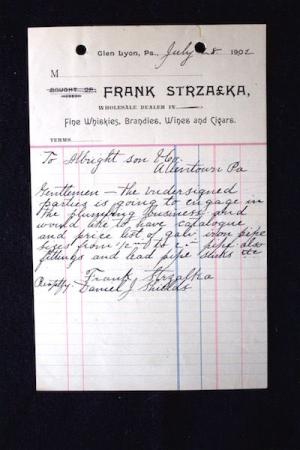 Glen Lyon, Pa., July 28 1902
M
BOUGHT OF
FRANK STRZAŁKA,
WHOLESALE DEALER IN
Fine Whiskies, Brandies, Wines and Cigars.
TERMS
To Albright son & Co.
Allentown Pa
Gentlemen – the undersigned
parties is going to engage in
the plumbing business and
would like to have catalogue
and price list of galv iron pipe
sizes from to pipe also
fittings and lead pipe sinks etc
Frank Strzalka
Daniel J Shields